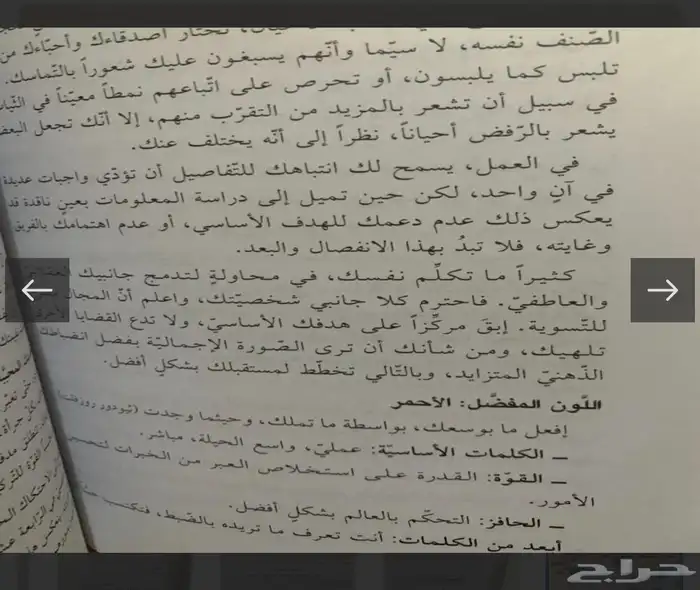 تختار أصدقاءك وأحبّاءك من
الصّنف نفسه، لا سيّما وأنّهم يسبغون عليك شعوراً بالتّماسك.
تلبس كما يلبسون، أو تحرص على اتّباعهم نمطاً معيّناً في
في سبيل أن تشعر بالمزيد من التقرّب منهم، إلا أنّك تجعل البعض
يشعر بالرّفض أحياناً، نظراً إلى أنّه يختلف عنك.
في العمل، يسمح لك انتباهك للتّفاصيل أن تؤدّي واجبات عديدة
في آنٍ واحد، لكن حين تميل إلى دراسة المعلومات بعينٍ ناقدة قد
يعكس ذلك عدم دعمك للهدف الأساسي، أو عدم اهتمامك بالفريق
وغايته، فلا تبدُ بهذا الانفصال والبعد.
كثيراً ما تكلّم نفسك، في محاولةٍ لتدمج جانبيك
والعاطفيّ. فاحترم كلا جانبي شخصيّتك، واعلم أنّ المجال
للتّسوية. إبقَ مركّزاً على هدفك الأساسيّ، ولا تدع القضايا
تلهيك، ومن شأنك أن ترى الصّورة الإجماليّة بفضل انضباطك
الذّهنيّ المتزايد، وبالتّالي تخطّط لمستقبلك بشكلٍ أفضل.
اللّون المفضّل: الأحمر
إفعل ما بوسعك، بواسطة ما تملك، وحيثما وجدت (تيودور روزفلت)
– الكلمات الأساسيّة: عمليّ، واسع الحيلة، مباشر.
– القوّة: القدرة على استخلاص العبر من الخبرات
الأمور.
– الحافز: التحكّم بالعالم بشكلٍ أفضل.
أبعد من الكلمات: أنت تعرف ما تريده بالضّبط،
حراج